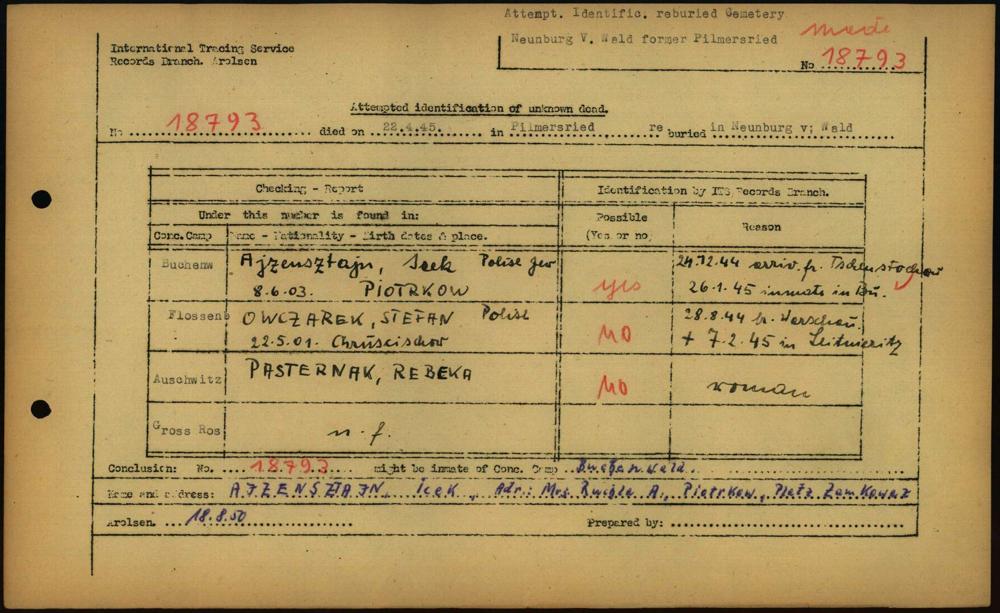 Attempt. Identific. reburied Cemetery
Neunburg V. Wald former Pilmersried
made
International Tracing Service
Records Branch. Arolsen
No 18793
Attempted identification of unknown dead.
No 18793 died on 22.4.45. in Pilmersried re buried in Neunburg v; Wald
Checking - Report
Identification by ITS Records Branch.
Under this number is found in:
Possible
(Yes or no)
Reason
Conc.Camp Name - Nationality - Birth dates & place.
Buchenw Ajzensztajn, Icek Polish Jew
8.6.03. PIOTRKOW
yes
24.12.44 arriv. fr. Tschenstochau
26.1.45 inmate in Bu.
Flossenb OWCZAREK, STEFAN Polish
22.5.01. Chruscischow
NO
28.8.44 fr. Warschau.
+ 7.2.45 in Leitmeritz
Auschwitz PASTERNAK, REBEKA
NO
woman
Gross Ros n. f.
Conclusion: No. 18.793 might be inmate of Conc. Camp Buchenwald.
Name and address: AJZENSZTAJN, Icek, Adr.: Mrs. A., Piotrkow, Platz
Arolsen. 18.8.50 Prepared by: